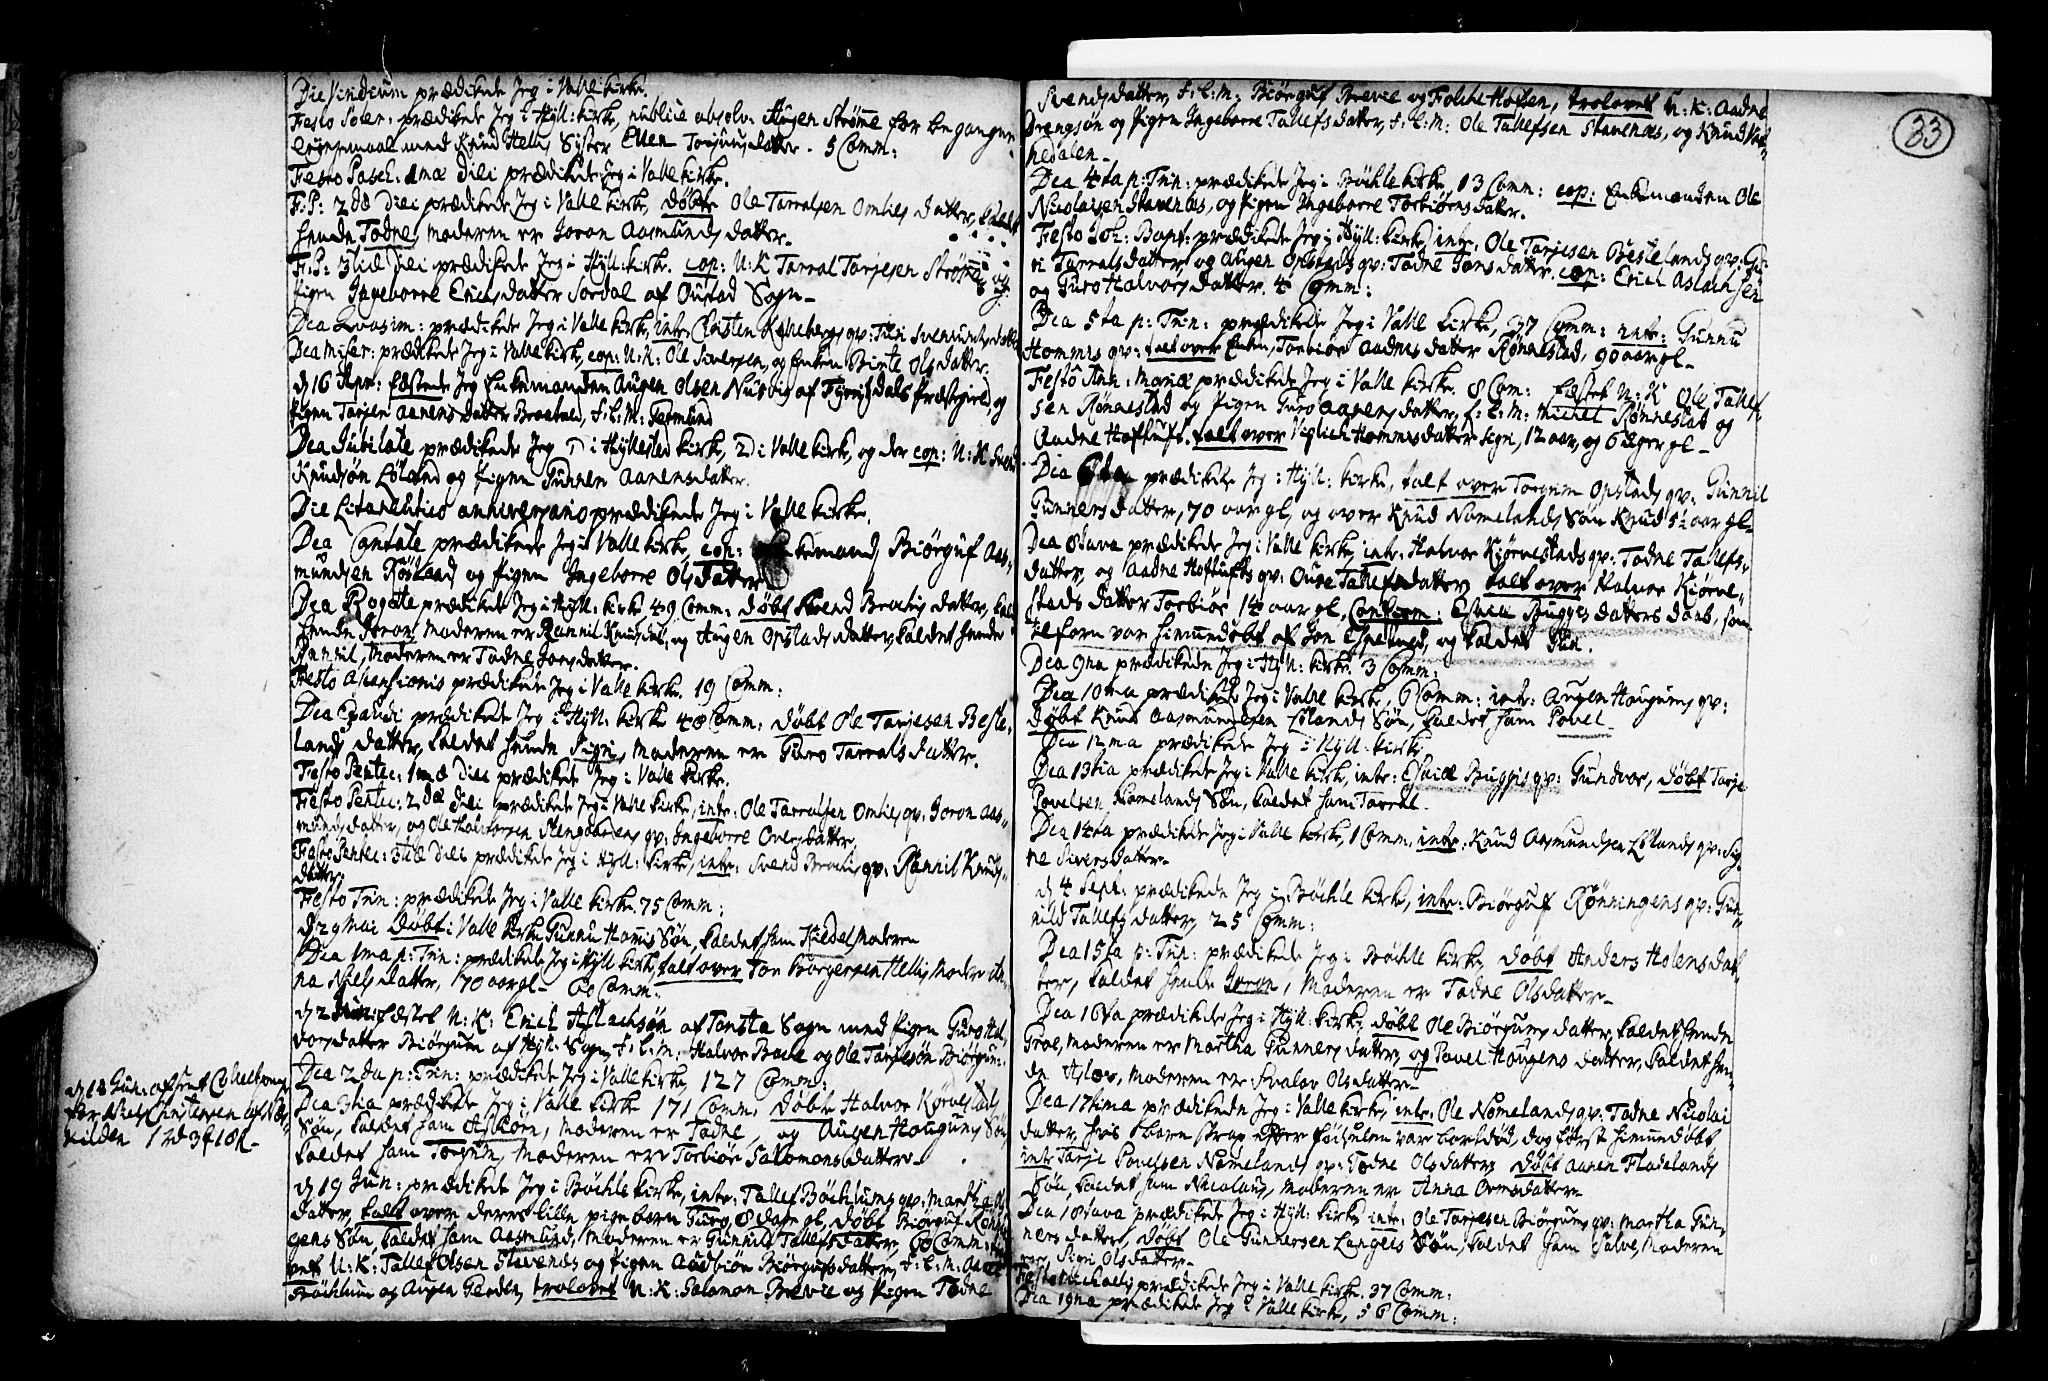 Die Viridium prædikede Jeg i Valle kirke.
Festo Solen: prædikede Jeg i Hyll: kirke, publice absolv: Haagen Strømme for begangen
Legermaal med Knud Helles Syster Ellen Torjuusdatter. 5 Comm:
Festo Pasch: 1mæ diei prædikede Jeg i Valle kirke.
F: P: 2dæ diei prædikede Jeg i Valle kirke, døbte Ole Tarralsen Omlies datter, kaldet
hende Todne, moderen er Joron Aasmunds datter.
F: P: 3tiæ diei prædikede Jeg i Hyll: kirke. cop: U: K Tarral Tarjesen Strømme og
Pigen Ingeborre Erichsdatter Sordal af Oustad Sogn
Dca Quasim: prædikede Jeg i Valle kirke, intr: Christen Kalleberg qv: Turi Svenundsdatter
Dca Miser: prædikede Jeg i Valle kirke, cop: U: K: Ole Siversen, og Enken Birte Olsdatter.
d 16 Apr: fæstede Jeg Enkemanden Augen Olsen Nusvig af Fyrrisdals Præstegield, og
Pigen Targen Aanensdatter Brottveld, F: L: M: Germund
Dca Jubilate prædikede Jeg 1) i Hyllestad kirke, 2) i Valle kirke, og der cop: U: K Svend
Knudsøn Løland og Pigen Gunner Aanensdatter.
Die Litaneutico anniversario prædikede Jeg i Valle kirke.
Dca Cantate prædikede Jeg i Valle kirke, cop: Enkemand Biørguf Aas-
mundsen Røslaad og Pigen Ingeborre Olsdatter
Dca Rogate prædiket Jeg i Hyll: kirke 49 Comm: døbt Svend Brotlis datter, kal-
hende Joron, moderen er Rannil Knusdat, og Haugen Opstads datter, kaldet hende
Annil, moderen er Todne Jonsdatter.
Festo Ascensionis prædikede Jeg i Valle kirke. 19 Comm:
Dca Exaudi prædikede Jeg i Hyll: kirke 40 Comm: døbt Ole Tarjesen Beste-
lands datter, kaldet hende Sigri, moderen er Guro Tarralsdatter.
Festo Pentec: 1mæ diei prædikede Jeg i Valle kirke.
Festo Pentec: 2dæ diei prædikede Jeg i Valle kirke, intr: Ole Tarralsen Omlies qv: Joron Aas-
mundsdatter, og Ole Halvorsen Stengarden qv: Ingeborre Oversdatter
Festo Pentec: 3tiæ diei prædikede Jeg i Hyll: kirke, intr: Svend Brotlis qv: Rannil Knuds-
datter.
Festo Trin: prædikede Jeg i Valle kirke. 75 Comm:
d 29 Mai døbt i Valle kirke Gunnu Homis Søn, kaldet ham Kieldel moderen
Dca 1ma p: Trin: prædikede Jeg i Hyll kirke, talt over Ton Borgersen Hellis Moder An-
na Niels datter, 70 aar gl 60 Comm:
d 2 Jun: Fæstet U: K: Erich Aslachsøn af Tonsta Sogn med Pigen Guro Hal-
vorsdatter Biørgum af Hyll: Sogn, F: L: M: Halvor Bove og Ole Tarjesøn Biørgum:
Dca 2da p: Trin: prædikede Jeg i Valle kirke, 127 Comm:
Dca 3tia prædikede Jeg i Valle kirke 171 Comm. døbt Halvor Kørvestads
Søn, kaldet ham Asbiørn, moderen er Todne, og Augen Hougums Søn
kaldet ham Torgum, moderen er Torbiør Salomonsdatter.
d 19 Jun: prædikede Jeg i Bøchle kirke, intr: Tallef Bøchlums qv: Martha
datter, talt over deres lille pigebarn Guro, 8 dage gl, døbt Biørguf Rønnin-
gens Søn, kaldet ham Aasmund, moderen er Gunnild Tallefsdatter, 60 Comm:
vet U: K: Tallef Olsen Stavends og Pigen Audbiør Biørgufsdatter, F: L: M:
Frøchlum og Augen Gerden, trolovet U: K: Salomon Brevie og Pigen Todne
d 18 Jun: afsent
for Niels Christensen
kilden 1 rd 3 f 10 sk
33
Svendsdatter, F: L: M: Biørguf Brevie og Folche Hofsen, trolovet U: K: Aadne
Drengsøn og Pigen Ingeborre Tallefsdatter, F: L: M: Ole Tallefsen Stavenæs, og Knud Vat-
nedalen
Dca 4ta p: Trin: prædikede Jeg i Bøchle kirke, 13 Comm: cop: Enkemanden Ole
Nicolaisen Stavenæs, og Pigen Ingeborre Torbiørnsdatter.
Festo Joh: Bapt: prædikede Jeg i Hyll: kirke, intr: Ole Tarjesen Bestelands qv: Gu-
ri Tarralsdatter, og Augen Opstads qv: Todne Jonsdatter. cop: Erich Aslachsen
og Guro Halvorsdatter. 4 Comm:
Dca 5ta p: Trin: prædikede Jeg i Valle kirke, 37 Comm: intr: Gunnu
Hommis qv: talt over Enken, Torbiør Aadnesdatter Rønnestad, 90 aar gl
Festo Ann: Mariæ prædikede Jeg i Valle kirke. 8 Com: fæstet U: K Ole Tallef-
sen Rønnestad og Pigen Guro Aanensdatter, F: L: M: Michel Rønnestad og
Aadne Hoftuft. talt over Viglich Hommesdatter Sign, 12 aar, og 6 uger gl
Dca 6ta prædikede Jeg i Hyll: kirke, talt over Torgrim Opstads qv: Gunnil
Gunnersdatter, 70 aar gl, og over Knud Nomelands Søn Knud 5½ aar gl
Dca 8tava prædikede Jeg i Valle kirke, intr: Halvor Kiørvestads qv: Todne Tallefs-
datter, og Aadne Hoftufts qv: Ouse Tallefsdatter, talt over Halvor Kiørve-
stads datter Torbiør 14 aar gl, Confirm: Esaiæ Bugges datters daab, som
tilforn var hiemmedøbt af Jon Espetvedt, og kaldet Gun.
Dca 9na prædikede Jeg i Hyll: kirke. 3 Comm:
Dca 10ma prædikede Jeg i Valle kirke, 6 Comm: intr: Augen Hougums qv:
Døbt Knud Aasmundsen Lølands Søn, kaldet ham Povel
Dca 12ma prædikede Jeg i Hyll: kirke
Dca 13tia prædikede Jeg i Valle kirke, intr: Esaiæ Buggis qv: Gundvor, døbt Tarje
Povelsen Nomelands Søn, kaldet ham Tarral
Dca 14ta prædikede Jeg i Valle kirke, 1 Comm: intr: Knud Aasmundsen Lølands qv: Sig-
ne Siversdatter
d 4 Sept: prædikede Jeg i Bøchle kirke, intr: Biørguf Rønningens qv: Gun-
nild Tallefsdatter, 25 Comm:
Dca 15ta p: Trin: prædikede Jeg i Bøchle kirke, døbt Anders Holens dat-
ter, kaldet hende Joron, Moderen er Todne Olsdatter
Dca 16ta prædikede Jeg i Hyll: kirke, døbt Ole Biørgums datter, kaldet hende
Groe, moderen er Martha Gunners datter, og Povel Hougens datter, kaldet hen-
de Aslov, moderen er Svalov Olsdatter
Dca 17tima prædikede Jeg i Valle kirke, intr: Ole Nomelands qv: Todne Nicolai
datter, hvis barn strax efter fødselen var bortdød, dog først hiemmedøbt
intr Tarje Povelsen Nomelands qv: Todne Olsdatter døbt Aanen Flatelands
Søn, kaldet ham Nicolaus, moderen er Anna Ormsdatter
Dca 18tava prædikede Jeg i Hyll: kirke intr: Ole Tarjesen Biørgums qv: Martha Gun-
nersdatter, døbt Ole Gunnersen Langeis Søn, kaldet ham Salve, moderen
er Sigri Olsdatter
Festo Michaelis prædikede Jeg i Valle kirke. 37 Comm:
Dca 19na prædikede Jeg i Valle kirke, 56 Comm: